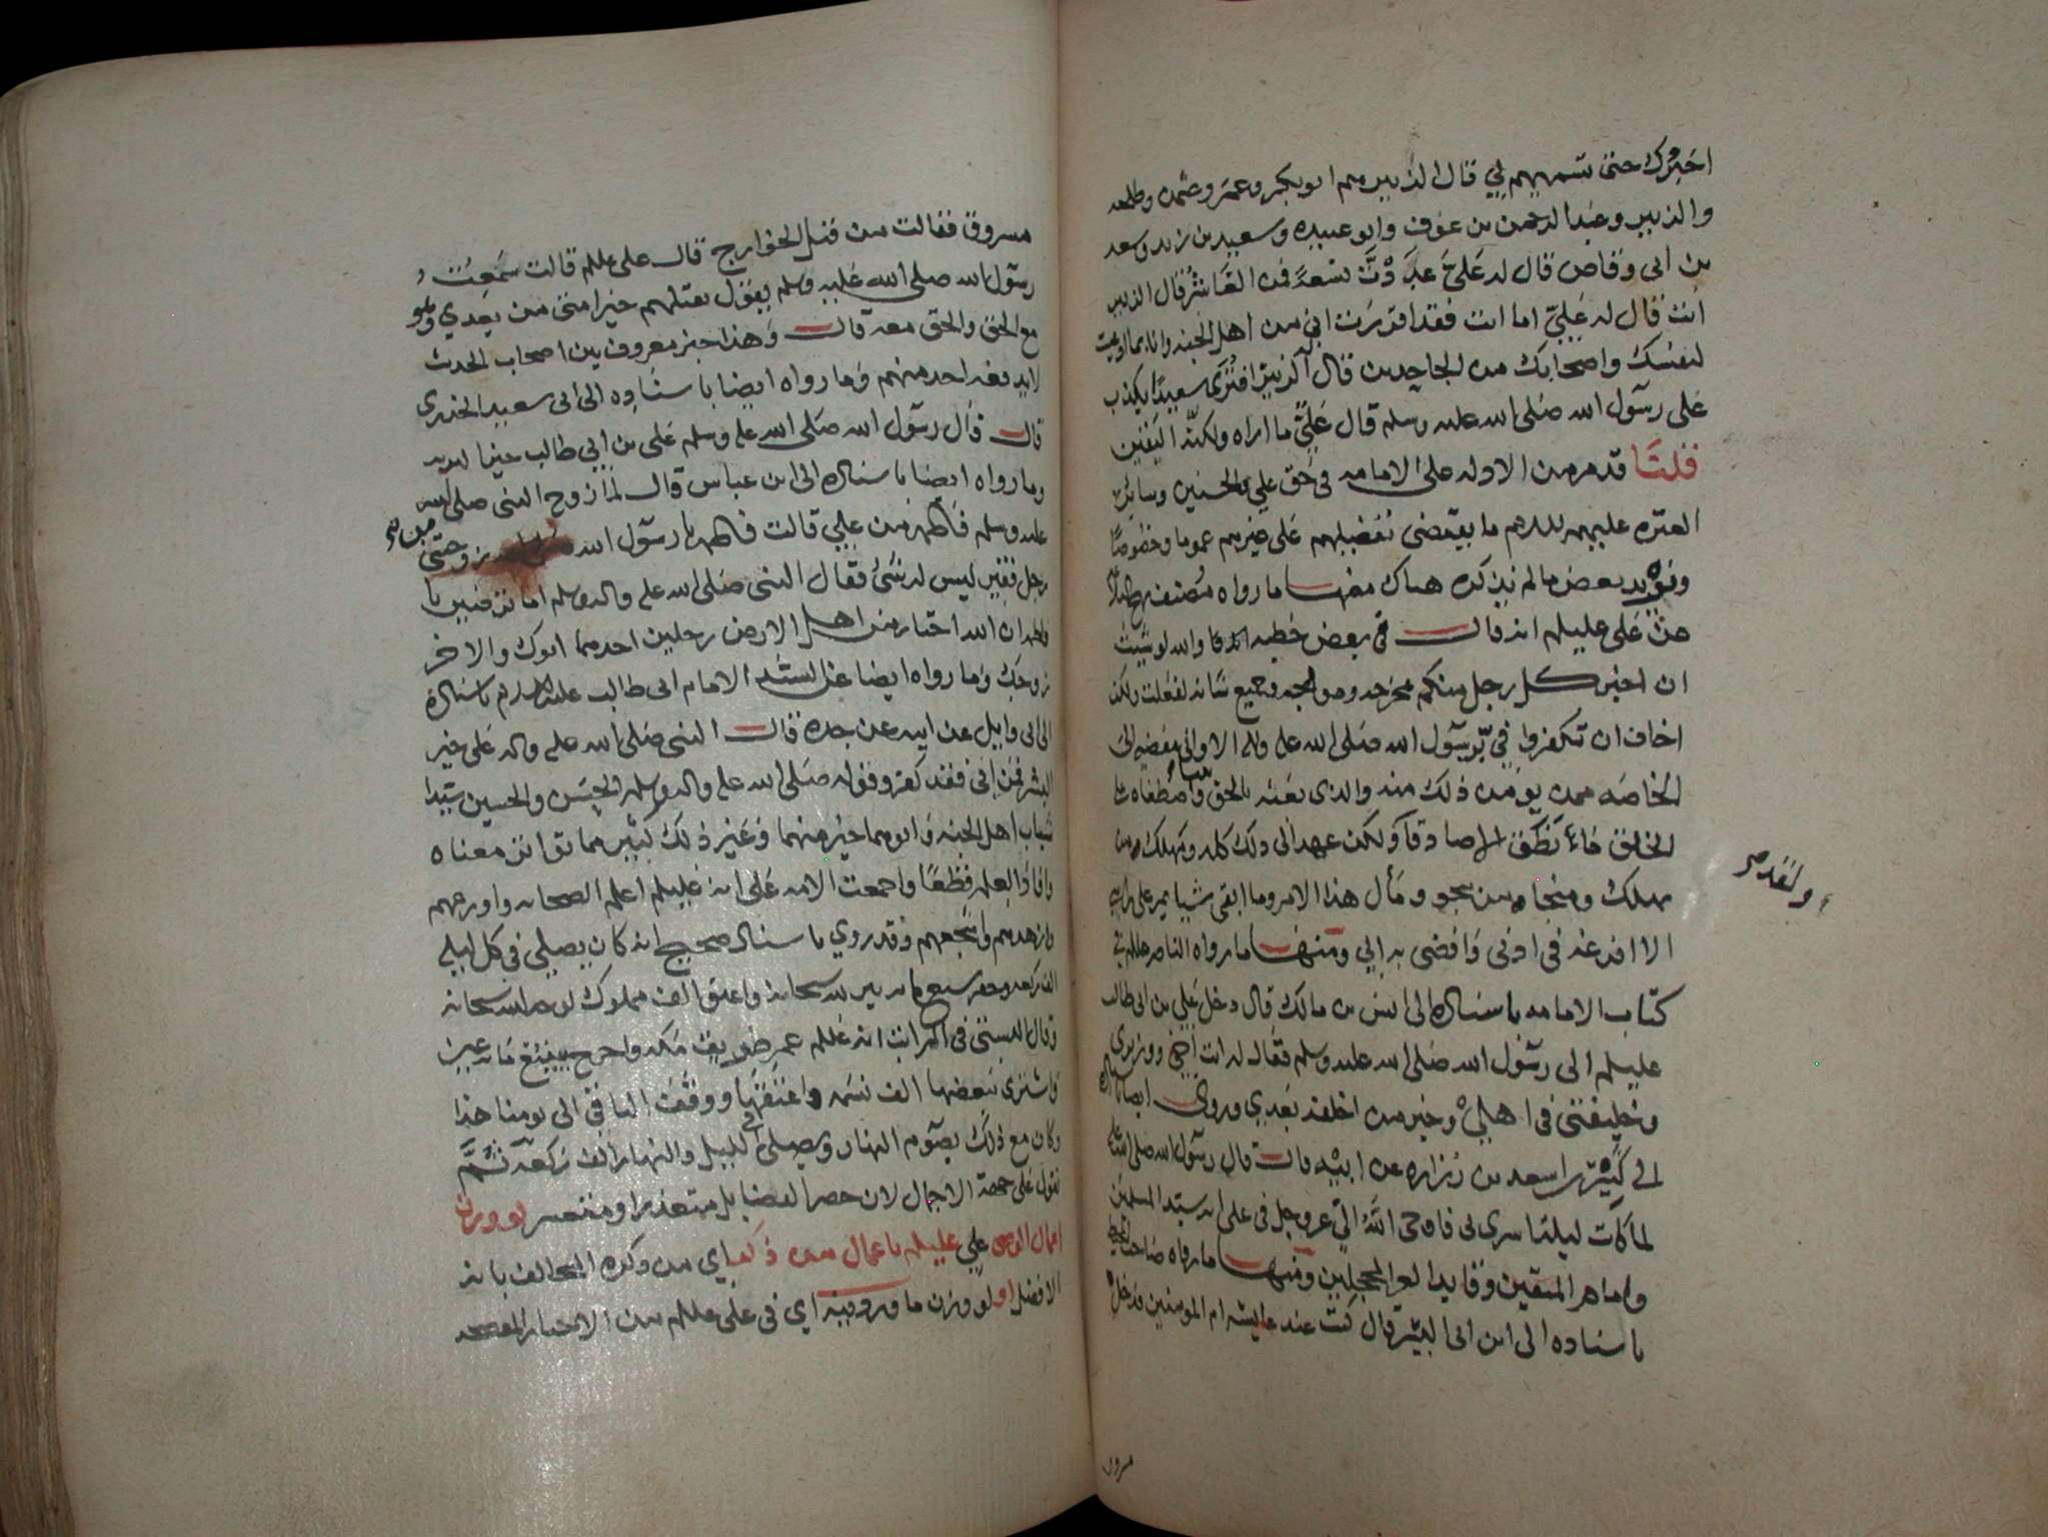 اخبرك حتى تسميهم لي قال الزبير هم ابو بكر وعمر وعثمن وطلحه
والزبير وعبد الرحمن بن عوف وابو عبيده وسعيد بن زيد وسعد
بن ابي وقاص قال له علي عددت تسعة فمن العاشر قال الزبير
انت قال له علي اما انت فقد اقررت اني من اهل الجنه وانا بما ادعيت
لنفسك واصحابك من الجاحدين قال الزبير افترى سعيدا يكذب
على رسول الله صلى الله عليه وسلم قال علي ما اراه ولكنه اليقين
قلنا قد مر من الادله على الامامه في حق علي والحسنين وساير
العتره عليهم السلام ما يقتضي تفضيلهم على غيرهم عموما وخصوصا
ونورد بعض ما لم نذكره هناك منها ما رواه مصنف
عن علي عليلم انه قال في بعض خطبه والله لو شيت
ان اخبر كل رجل منكم بمخرجه ومولجه وجميع شانه لفعلت ولكن
اخاف ان تكفروا في برسول الله صلى الله عليه واله الا واني مفضيه الى
الخاصه ممن يومن ذلك منه والذي بعثه بالحق واصطفاه على
الخلق ما انطق الا صادقا ولكن عهد الي ذلك كله ومهلك من
يهلك ومنجا من ينجو ومآل هذا الامر وما ابقى شيا يمر على راسي
ولقد
الا افرغه في اذني وافضى به الي ومنها ما رواه الناصر عليلم في
كتاب الامامه باسناده الى انس بن مالك قال دخل علي بن ابي طالب
عليلم الى رسول الله صلى الله عليه وسلم فقال له انت اخي ووزيري
وخليفتي في اهلي وخير من اخلف بعدي وروى ايضا باسناده
الى اسعد بن زراره عن ابيه قال قال رسول الله صلى الله عليه
لما كانت ليلة اسري بي فاوحى الله الي عز وجل في علي انه سيد المسلمين
وامام المتقين وقايد الغر المحجلين ومنها ما رواه صاحب المحيط
باسناده الى ابن ابي اليسر قال كنت عند عايشه ام المومنين فدخل
مسروق
مسروق فقالت من قتل الخوارج قال علي عليلم قالت سمعت
رسول الله صلى الله عليه وسلم يقول يقتلهم خير امتي من بعدي وهو
مع الحق والحق معه قال وهذا خبر معروف بين اصحاب الحديث
لا يدفعه احد منهم وما رواه ايضا باسناده الى ابي سعيد الخدري
قال قال رسول الله صلى الله عليه وسلم علي بن ابي طالب خير البريه
وما رواه ايضا باسناده الى ابن عباس قال لما زوج النبي صلى الله
عليه وسلم فاطمه من علي قالت فاطمه يا رسول الله زوجتني من
رجل فقير ليس له شئ فقال النبي صلى الله عليه واله وسلم اما ترضين يا
فاطمه ان الله اختار من اهل الارض رجلين احدهما ابوك والاخر
زوجك وما رواه ايضا عن السيد الامام ابي طالب عليه السلام باسناده
الى ابي وايل عن ابيه عن جده قال قال النبي صلى الله عليه واله علي خير
البشر فمن ابى فقد كفر وقوله صلى الله عليه واله وسلم الحسن والحسين سيدا
شباب اهل الجنه وابوهما خير منهما وغير ذلك كثير مما تواتر معناه
وافاد العلم قطعا واجمعت الامه على انه عليلم اعلم الصحابه واورعهم
وازهدهم واشجعهم وقد روي باسناد صحيح انه كان يصلي في كل ليله
الف ركعه سبحانه واعتق الف مملوك لوجه الله سبحانه
وقال البستي في المراتب انه عليلم عمر طريق مكه واخرج بينبع مايه عين
واشترى ببعضها الف نسمه واعتقها ووقف الباقي الى يومنا هذا
وكان مع ذلك يصوم النهار ويصلي في الليل والنهار الف ركعه ثم
نقول على جهة الاجمال لان حصر الفضايل متعذر او متعسر لو وزن
اعمال الوصي علي عليلم باعمال من ذكر اي من ذكره المخالف بانه
الافضل او لو وزن ما ورد فيه اي في علي عليلم من الاخبار المصححه